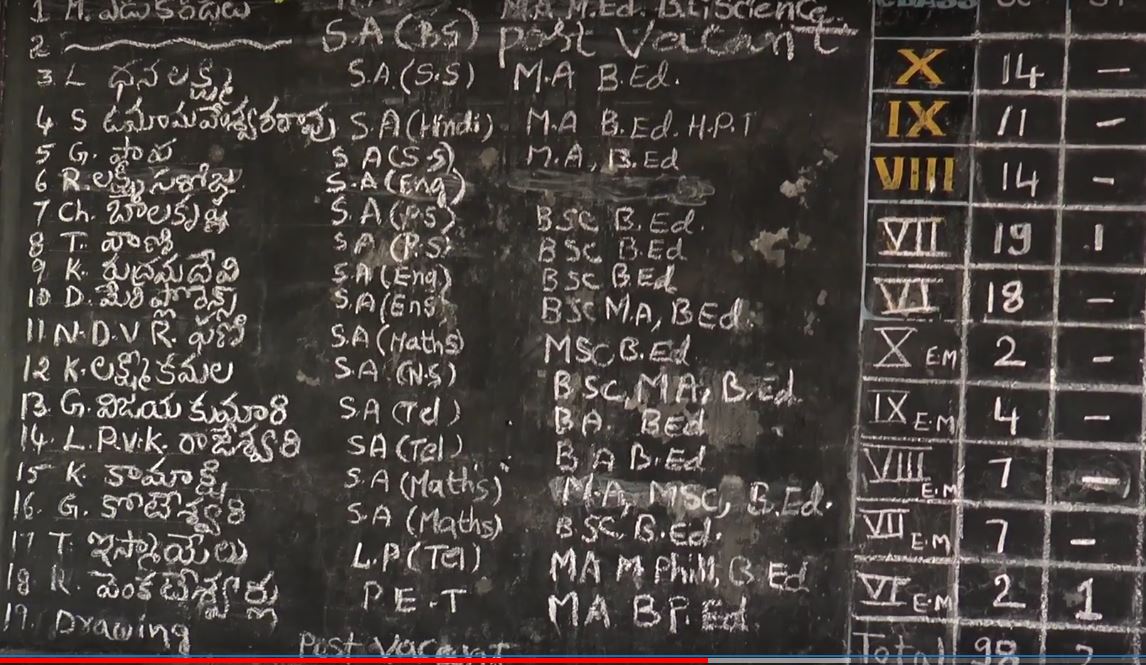 1 M. ఏడుకొండలు M.A M.Ed. B.LiScience
2 S.A (BS) post Vacant
3 L ధనలక్ష్మి S.A (S.S) M.A B.Ed.
4 S ఉమామహేశ్వరరావు S.A (Hindi) M.A B.Ed. H.P.T
5 G. S A (S.S) M.A, B.Ed
6 R. లక్ష్మీ సరోజ S.A (Eng)
7 Ch. బాలకృష్ణ S.A (P.S) BSC B.Ed.
8 T. వాణి S A (P.S) BSC B.Ed
9 K. రుద్రమదేవి S.A (Eng) BSC B.Ed
10 D. మేరి ఫ్లోరెన్స్ S.A (Eng) BSC M.A, B.Ed.
11 N.D.V R. ఫణి S.A (Maths) MSC B.Ed
12 K. లక్ష్మీకమల S.A (N.S) B SC, M.A, B.Ed.
13. G. విజయ కుమారి S.A (Tel) BA. BEd
14. L.P.V.K. రాజేశ్వరి SA (Tel) B A B.Ed
15 K కామాక్షి S.A (Maths) M.A, MSC, B.Ed.
16. G. కోటేశ్వరి S.A (Maths) B SC. B.Ed.
17 T. ఇస్మాయేలు L.P (Tel) MA M Phill, B Ed
18 K. వెంకటేశ్వర్లు P.E.T MA B P. Ed
19. Drawing Post Vacant
CLASS SC ST
X 14 –
IX 11 –
VIII 14 –
VII 19 1
VI 18 –
X E.M 2 –
IX E.M 4 –
VIII E.M 7 –
VII E.M 7 –
VI E.M 2 1
Total 98 2